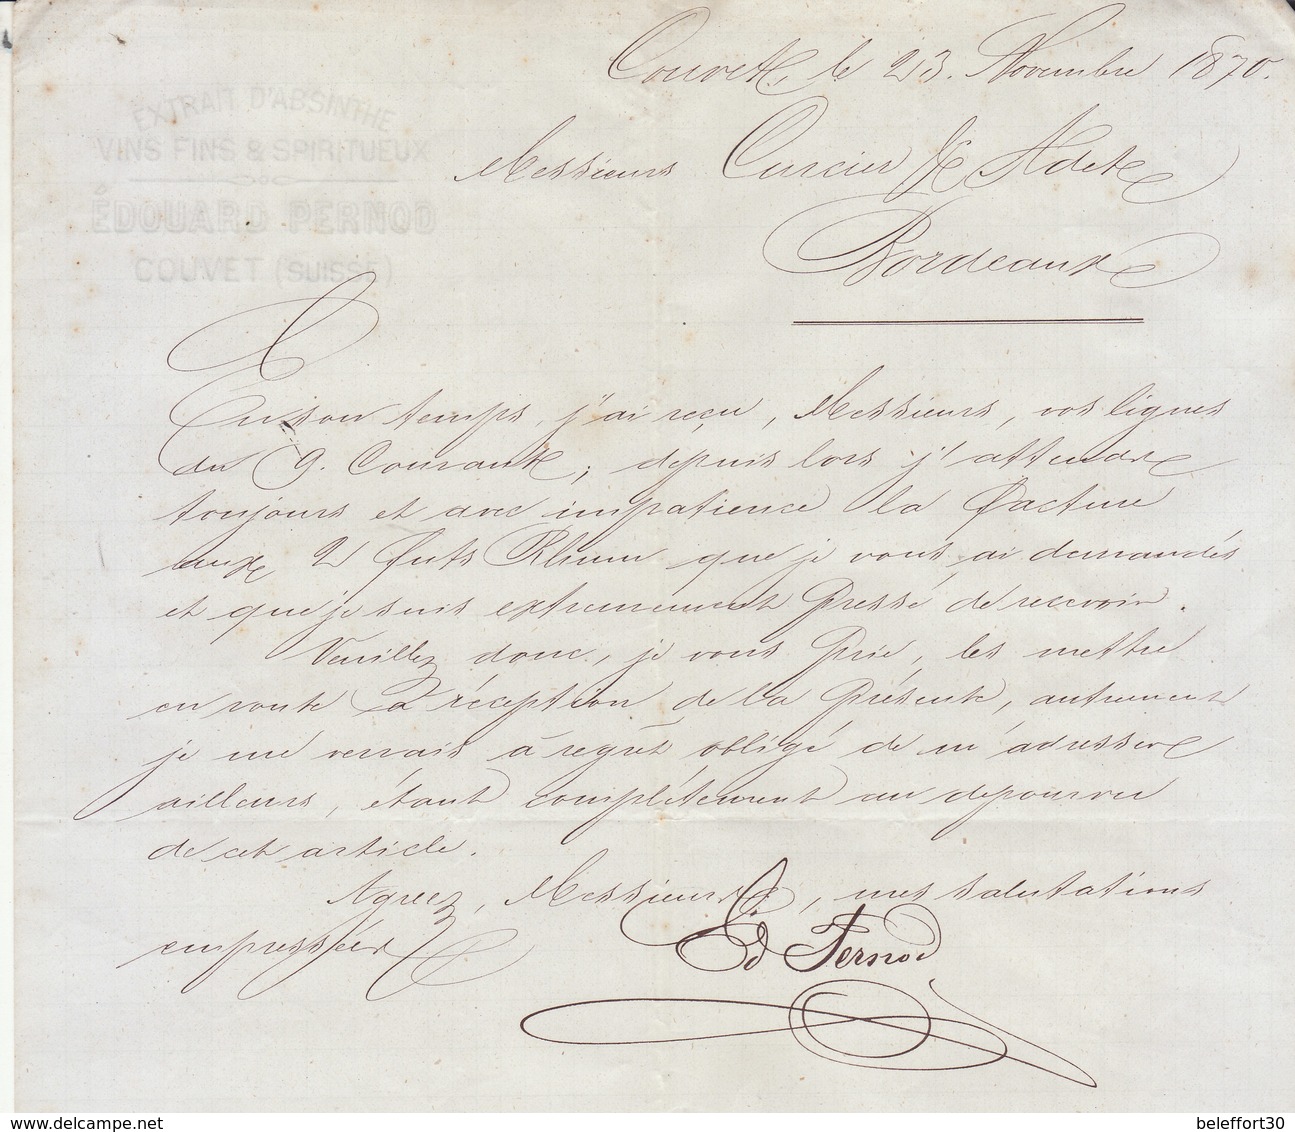 Couvet, le 23. Novembre 1870.
EXTRAIT D'ABSINTHE
VINS FINS & SPIRITUEUX
ÉDOUARD PERNOD
COUVET (SUISSE)
Messieurs Curcier & Adet
Bordeaux
En son temps, j'ai reçu, Messieurs, vos lignes
du 9. Courant; depuis lors j'attendre
toujours et avec impatience la facture
aux 2 futs Rhum que je vous ai demandés
et que je suis extremement pressé de recevoir.
Veuillez donc, je vous prie, les mettre
en route à réception de la présente, autrement
je me verrais à regrèt obligé de m'adresser
ailleurs, étant complétement au dépourvu
de cet article.
Agreez, Messieurs, mes salutations
empressées
Ed Pernod
delcampe.net
beleffort30